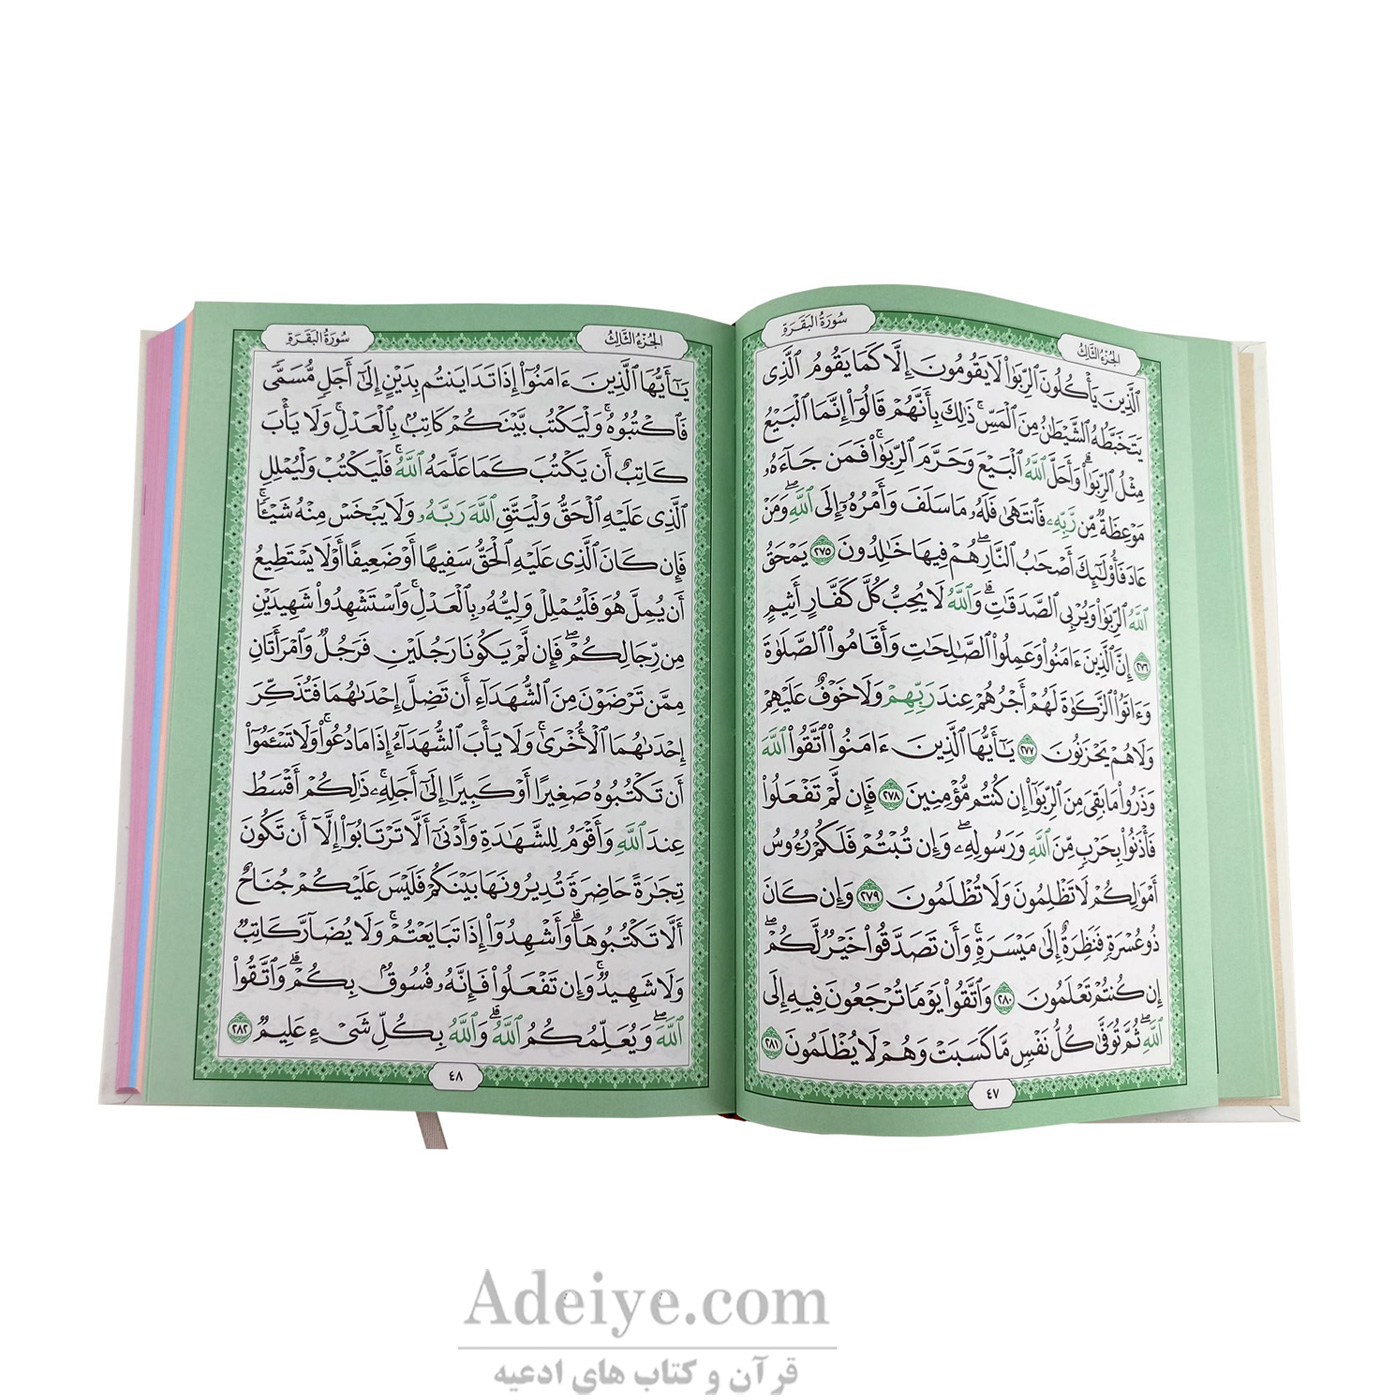 الجزء الثالث
سورة البقرة
ٱلَّذِينَ يَأۡكُلُونَ ٱلرِّبَوٰاْ لَا يَقُومُونَ إِلَّا كَمَا يَقُومُ ٱلَّذِي
يَتَخَبَّطُهُ ٱلشَّيۡطَٰنُ مِنَ ٱلۡمَسِّۚ ذَٰلِكَ بِأَنَّهُمۡ قَالُوٓاْ إِنَّمَا ٱلۡبَيۡعُ
مِثۡلُ ٱلرِّبَوٰاْۗ وَأَحَلَّ ٱللَّهُ ٱلۡبَيۡعَ وَحَرَّمَ ٱلرِّبَوٰاْۚ فَمَن جَآءَهُۥ
مَوۡعِظَةٞ مِّن رَّبِّهِۦ فَٱنتَهَىٰ فَلَهُۥ مَا سَلَفَ وَأَمۡرُهُۥٓ إِلَى ٱللَّهِۖ وَمَنۡ
عَادَ فَأُوْلَٰٓئِكَ أَصۡحَٰبُ ٱلنَّارِۖ هُمۡ فِيهَا خَٰلِدُونَ ٢٧٥ يَمۡحَقُ
ٱللَّهُ ٱلرِّبَوٰاْ وَيُرۡبِي ٱلصَّدَقَٰتِۗ وَٱللَّهُ لَا يُحِبُّ كُلَّ كَفَّارٍ أَثِيمٍ
٢٧٦ إِنَّ ٱلَّذِينَ ءَامَنُواْ وَعَمِلُواْ ٱلصَّٰلِحَٰتِ وَأَقَامُواْ ٱلصَّلَوٰةَ
وَءَاتَوُاْ ٱلزَّكَوٰةَ لَهُمۡ أَجۡرُهُمۡ عِندَ رَبِّهِمۡ وَلَا خَوۡفٌ عَلَيۡهِمۡ
وَلَا هُمۡ يَحۡزَنُونَ ٢٧٧ يَٰٓأَيُّهَا ٱلَّذِينَ ءَامَنُواْ ٱتَّقُواْ ٱللَّهَ
وَذَرُواْ مَا بَقِيَ مِنَ ٱلرِّبَوٰٓاْ إِن كُنتُم مُّؤۡمِنِينَ ٢٧٨ فَإِن لَّمۡ تَفۡعَلُواْ
فَأۡذَنُواْ بِحَرۡبٖ مِّنَ ٱللَّهِ وَرَسُولِهِۦۖ وَإِن تُبۡتُمۡ فَلَكُمۡ رُءُوسُ
أَمۡوَٰلِكُمۡ لَا تَظۡلِمُونَ وَلَا تُظۡلَمُونَ ٢٧٩ وَإِن كَانَ
ذُو عُسۡرَةٖ فَنَظِرَةٌ إِلَىٰ مَيۡسَرَةٖۚ وَأَن تَصَدَّقُواْ خَيۡرٞ لَّكُمۡۖ
إِن كُنتُمۡ تَعۡلَمُونَ ٢٨٠ وَٱتَّقُواْ يَوۡمٗا تُرۡجَعُونَ فِيهِ إِلَى
ٱللَّهِۖ ثُمَّ تُوَفَّىٰ كُلُّ نَفۡسٖ مَّا كَسَبَتۡ وَهُمۡ لَا يُظۡلَمُونَ ٢٨١
٤٧
الجزء الثالث
سورة البقرة
يَٰٓأَيُّهَا ٱلَّذِينَ ءَامَنُوٓاْ إِذَا تَدَايَنتُم بِدَيۡنٍ إِلَىٰٓ أَجَلٖ مُّسَمّٗى
فَٱكۡتُبُوهُۚ وَلۡيَكۡتُب بَّيۡنَكُمۡ كَاتِبُۢ بِٱلۡعَدۡلِۚ وَلَا يَأۡبَ
كَاتِبٌ أَن يَكۡتُبَ كَمَا عَلَّمَهُ ٱللَّهُۚ فَلۡيَكۡتُبۡ وَلۡيُمۡلِلِ
ٱلَّذِي عَلَيۡهِ ٱلۡحَقُّ وَلۡيَتَّقِ ٱللَّهَ رَبَّهُۥ وَلَا يَبۡخَسۡ مِنۡهُ شَيۡـٔٗاۚ
فَإِن كَانَ ٱلَّذِي عَلَيۡهِ ٱلۡحَقُّ سَفِيهًا أَوۡ ضَعِيفًا أَوۡ لَا يَسۡتَطِيعُ
أَن يُمِلَّ هُوَ فَلۡيُمۡلِلۡ وَلِيُّهُۥ بِٱلۡعَدۡلِۚ وَٱسۡتَشۡهِدُواْ شَهِيدَيۡنِ
مِن رِّجَالِكُمۡۖ فَإِن لَّمۡ يَكُونَا رَجُلَيۡنِ فَرَجُلٞ وَٱمۡرَأَتَانِ
مِمَّن تَرۡضَوۡنَ مِنَ ٱلشُّهَدَآءِ أَن تَضِلَّ إِحۡدَىٰهُمَا فَتُذَكِّرَ
إِحۡدَىٰهُمَا ٱلۡأُخۡرَىٰۚ وَلَا يَأۡبَ ٱلشُّهَدَآءُ إِذَا مَا دُعُواْۚ وَلَا تَسۡـَٔمُوٓاْ
أَن تَكۡتُبُوهُ صَغِيرًا أَوۡ كَبِيرًا إِلَىٰٓ أَجَلِهِۦۚ ذَٰلِكُمۡ أَقۡسَطُ
عِندَ ٱللَّهِ وَأَقۡوَمُ لِلشَّهَٰدَةِ وَأَدۡنَىٰٓ أَلَّا تَرۡتَابُوٓاْ إِلَّآ أَن تَكُونَ
تِجَٰرَةً حَاضِرَةٗ تُدِيرُونَهَا بَيۡنَكُمۡ فَلَيۡسَ عَلَيۡكُمۡ جُنَاحٌ
أَلَّا تَكۡتُبُوهَاۗ وَأَشۡهِدُوٓاْ إِذَا تَبَايَعۡتُمۡۚ وَلَا يُضَآرَّ كَاتِبٞ
وَلَا شَهِيدٞۚ وَإِن تَفۡعَلُواْ فَإِنَّهُۥ فُسُوقُۢ بِكُمۡۗ وَٱتَّقُواْ
ٱللَّهَۖ وَيُعَلِّمُكُمُ ٱللَّهُۗ وَٱللَّهُ بِكُلِّ شَيۡءٍ عَلِيمٞ ٢٨٢
٤٨
Adeiye.com
قرآن و کتاب های ادعیه